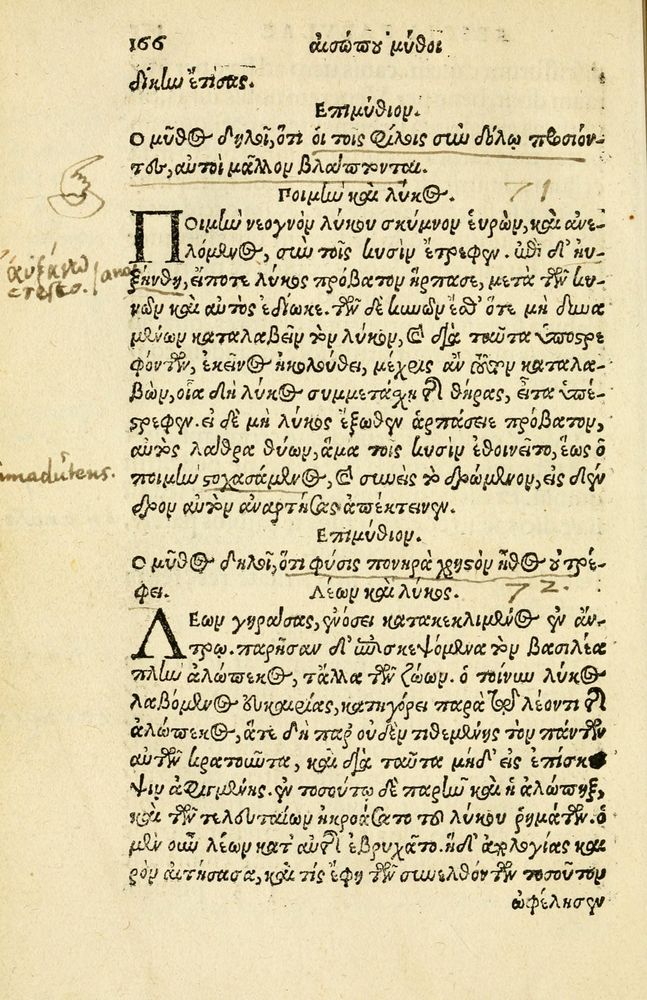 166 αἰσώπου μῦθοι
δίκην ἔτισας.
Ἐπιμύθιον.
Ὁ μῦθος δηλοῖ, ὅτι οἱ τοῖς φίλοις σὺν δόλῳ προσιόν-
τες, αὐτοὶ μᾶλλον βλάπτονται.
Ποιμὴν καὶ λύκος. 71
ΠΟιμὴν νεογνὸν λύκου σκύμνον εὑρὼν, καὶ ἀνε-
λόμενος, σὺν τοῖς κυσὶν ἔτρεφεν. ἐπεὶ δ' ηυ-
αὐξάνω
cresco.
ξήνθη, εἴποτε λύκος πρόβατον ἥρπασε, μετὰ τῶν κυ-
νῶν καὶ αὐτὸς ἐδίωκε. τῶν δὲ κυνῶν ἔσθ' ὅτε μὴ δυνα
μένων καταλαβεῖν τὸν λύκον, καὶ διὰ ταῦτα ὑποστρε
φόντων, ἐκεῖνος ἠκολούθει, μέχρις ἂν τοῦτον καταλα-
βὼν, οἷα δὴ λύκος συμμετάσχῃ τῆς θήρας, εἶτα ὑπέ-
στρεφεν. εἰ δὲ μὴ λύκος ἔξωθεν ἁρπάσειε πρόβατον,
αὐτὸς λάθρα θύων, ἅμα τοῖς κυσὶν ἐθοινεῖτο, ἕως ὁ
ποιμὴν στοχασάμενος, καὶ συνεὶς τὸ δρώμενον, εἰς δέν
δρον αὐτὸν ἀναρτήσας ἀπέκτεινεν.
Ἐπιμύθιον.
Ὁ μῦθος δηλοῖ, ὅτι φύσις πονηρὰ χρηστὸν ἦθος οὐ τρέ-
φει. Λέων καὶ λύκος. 72.
ΛΕων γηράσας, ἐνόσει κατακεκλιμένος ἐν ἄν-
τρῳ. παρῆσαν δ' ἐπισκεψόμενα τὸν βασιλέα
πλὴν ἀλώπεκος, τἄλλα τῶν ζώων. ὁ τοίνυν λύκος
λαβόμενος εὐκαιρίας, κατηγόρει παρὰ τῷ λέοντι τῆς
ἀλώπεκος, ἅτε δὴ παρ' οὐδὲν τιθεμένης τὸν πάντων
αὐτῶν κρατοῦντα, καὶ διὰ ταῦτα μηδ' εἰς ἐπίσκε
ψιν ἀφιγμένης. ἐν τοσούτῳ δὲ παρῆν καὶ ἡ ἀλώπηξ,
καὶ τῶν τελευταίων ἠκροάσατο τοῦ λύκου ῥημάτων. ὁ
μὲν οὖν λέων κατ' αὐτῆς ἐβρυχᾶτο. ἡ δ' ἀπολογίας και
ρὸν αἰτήσασα, καὶ τίς ἔφη τῶν συνελθόντων τοσοῦτον
ὠφέλησεν